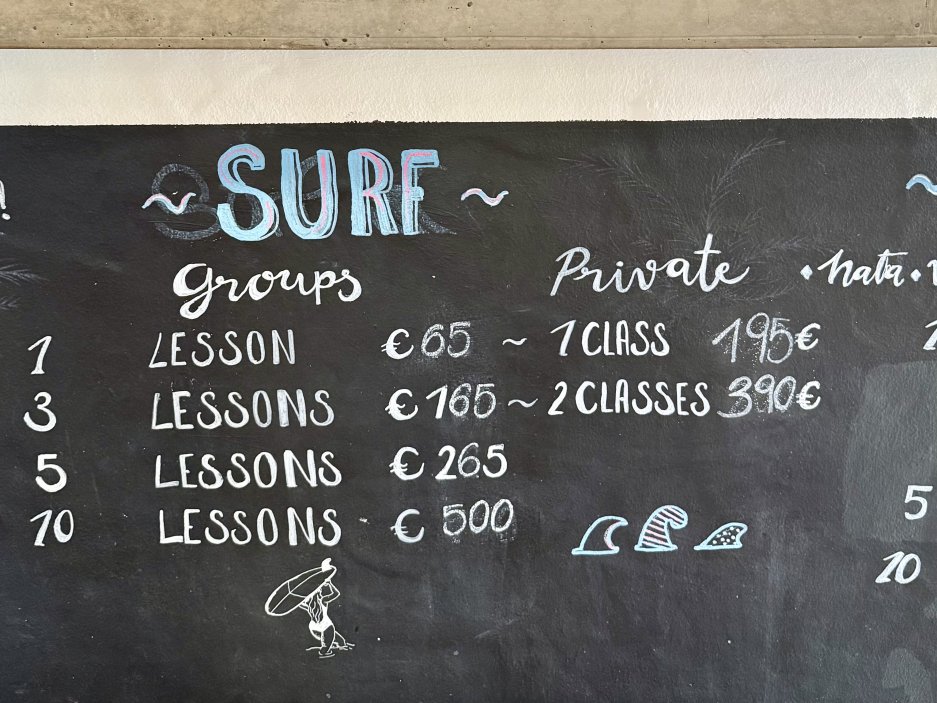 ~ SURF ~
Groups
1 LESSON € 65
3 LESSONS € 165
5 LESSONS € 265
10 LESSONS € 500
Private
~ 1 CLASS 195€
~ 2 CLASSES 390€
5
10